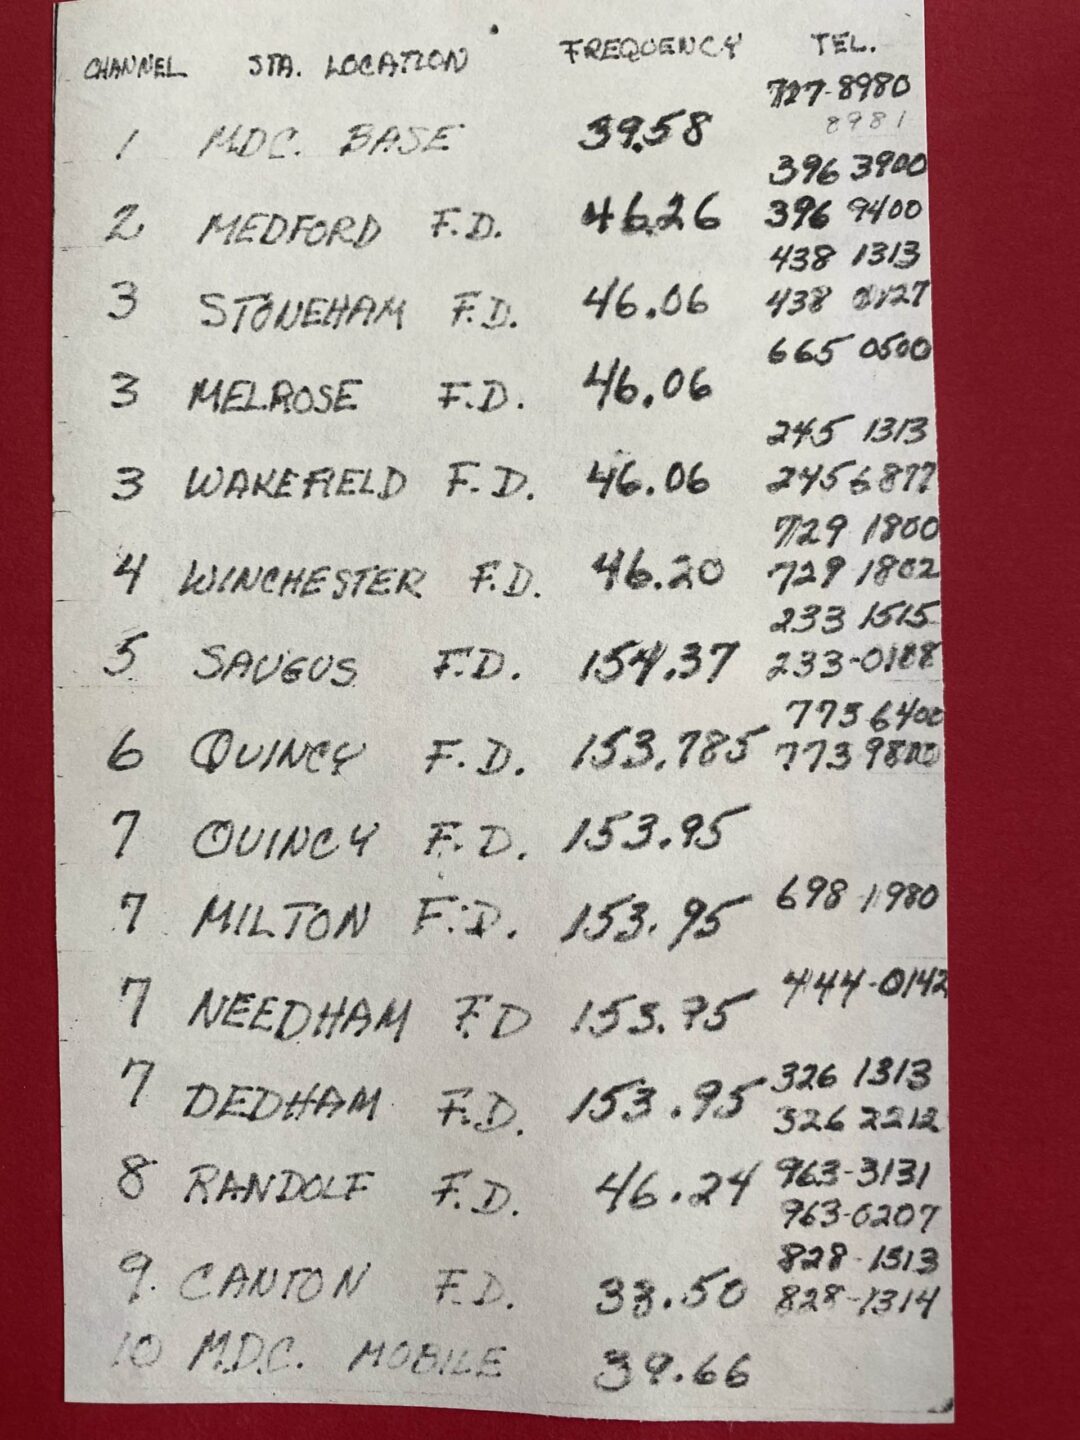 CHANNEL STA. LOCATION FREQUENCY TEL.
727-8980
1 M.D.C. BASE 39.58 8981
396 3900
2 MEDFORD F.D. 46.26 396 9400
438 1313
3 STONEHAM F.D. 46.06 438
665 0500
3 MELROSE F.D. 46.06
245 1313
3 WAKEFIELD F.D. 46.06 245 6877
729 1800
4 WINCHESTER F.D. 46.20 729 1802
233 1515
5 SAUGUS F.D. 154.37
773 6400
6 QUINCY F.D. 153.785 773 9800
7 QUINCY F.D. 153.95
7 MILTON F.D. 153.95 698-1980
444-0142
7 NEEDHAM F.D 153.95
326 1313
7 DEDHAM F.D. 153.95 326 2212
963-3131
8 RANDOLF F.D. 46.24 963-0207
828-1313
9. CANTON F.D. 33.50 828-1314
10 M.D.C. MOBILE 39.66